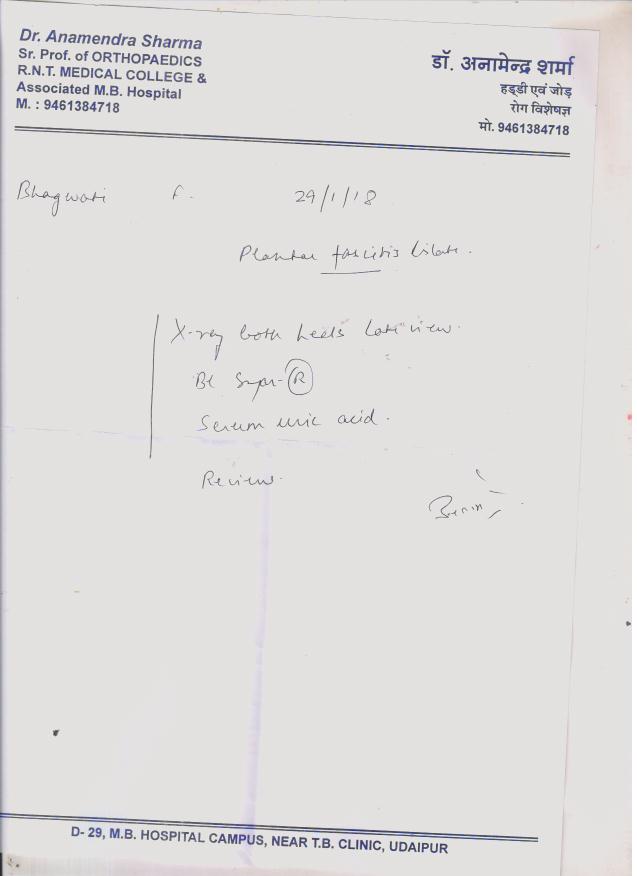 Dr. Anamendra Sharma
Sr. Prof. of ORTHOPAEDICS
R.N.T. MEDICAL COLLEGE &
Associated M.B. Hospital
M. : 9461384718
डॉ. अनामेन्द्र शर्मा
हड्डी एवं जोड़
रोग विशेषज्ञ
मो. 9461384718
Bhagwati F. 29/1/18
Plantar fascitis bilat.
X-ray both heels Lat view.
Bl Sugar-R
Serum uric acid.
Review.
D- 29, M.B. HOSPITAL CAMPUS, NEAR T.B. CLINIC, UDAIPUR